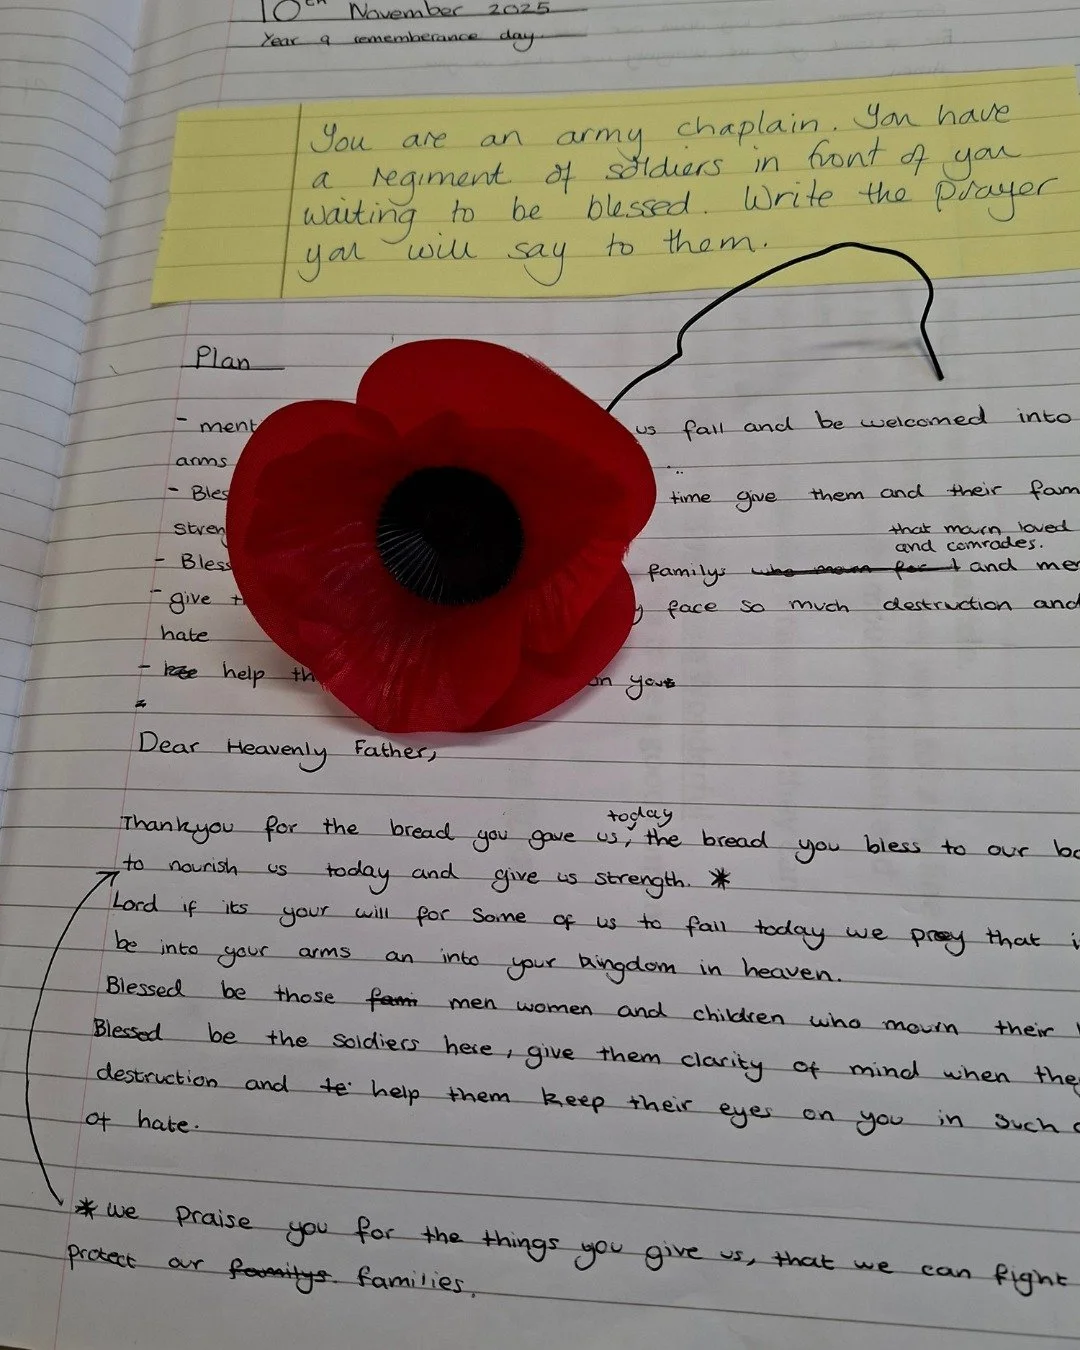 10th November 2025
Year 9 rememberance day
You are an army chaplain. You have
a regiment of soldiers in front of you
waiting to be blessed. Write the prayer
you will say to them.
Plan
- ment us fall and be welcomed into
arms
- Bles time give them and their fam
stren that mourn loved
and comrades.
- Bless familys who mourn for t and me
- give t y face so much destruction and
hate
- help th on you
Dear Heavenly Father,
today
Thankyou for the bread you gave us, the bread you bless to our bo
to nourish us today and give us strength. *
Lord if its your will for some of us to fall today we prey that i
be into your arms an into your kingdom in heaven.
Blessed be those fami men women and children who mourn their
Blessed be the soldiers here, give them clarity of mind when the
destruction and te help them keep their eyes on you in such
of hate.
* we praise you for the things you give us, that we can fight
protect our familys families.